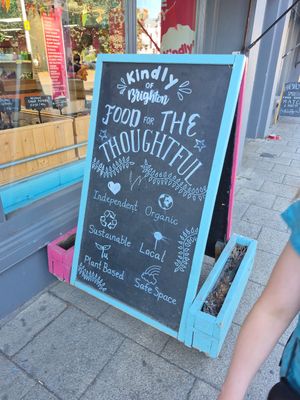 Kindly
of
Brighton
FOOD FOR THE
THOUGHTFUL
Independent
Organic
Sustainable
Local
Plant Based
Safe Space
Kindly